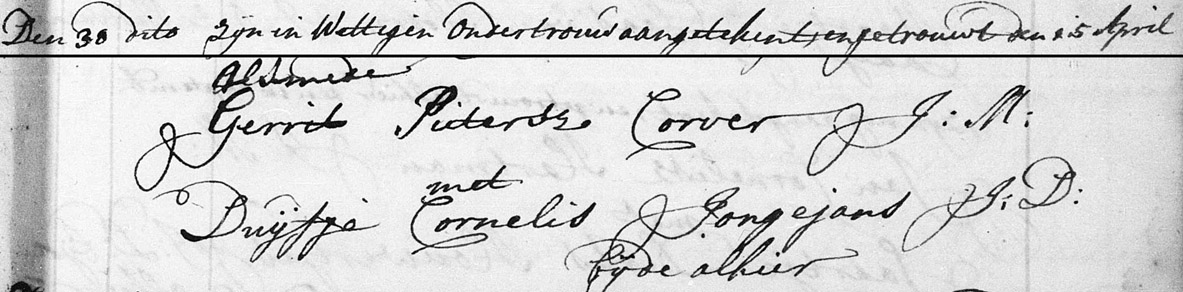 Den 30 dito zijn in Wettigen Ondertrouw aangetekent, en getrouwt den 15 April
Alsmede
Gerrit Pietersz Corver J: M:
met
Duijfje Cornelis Jongejans J: D:
bijde alhier